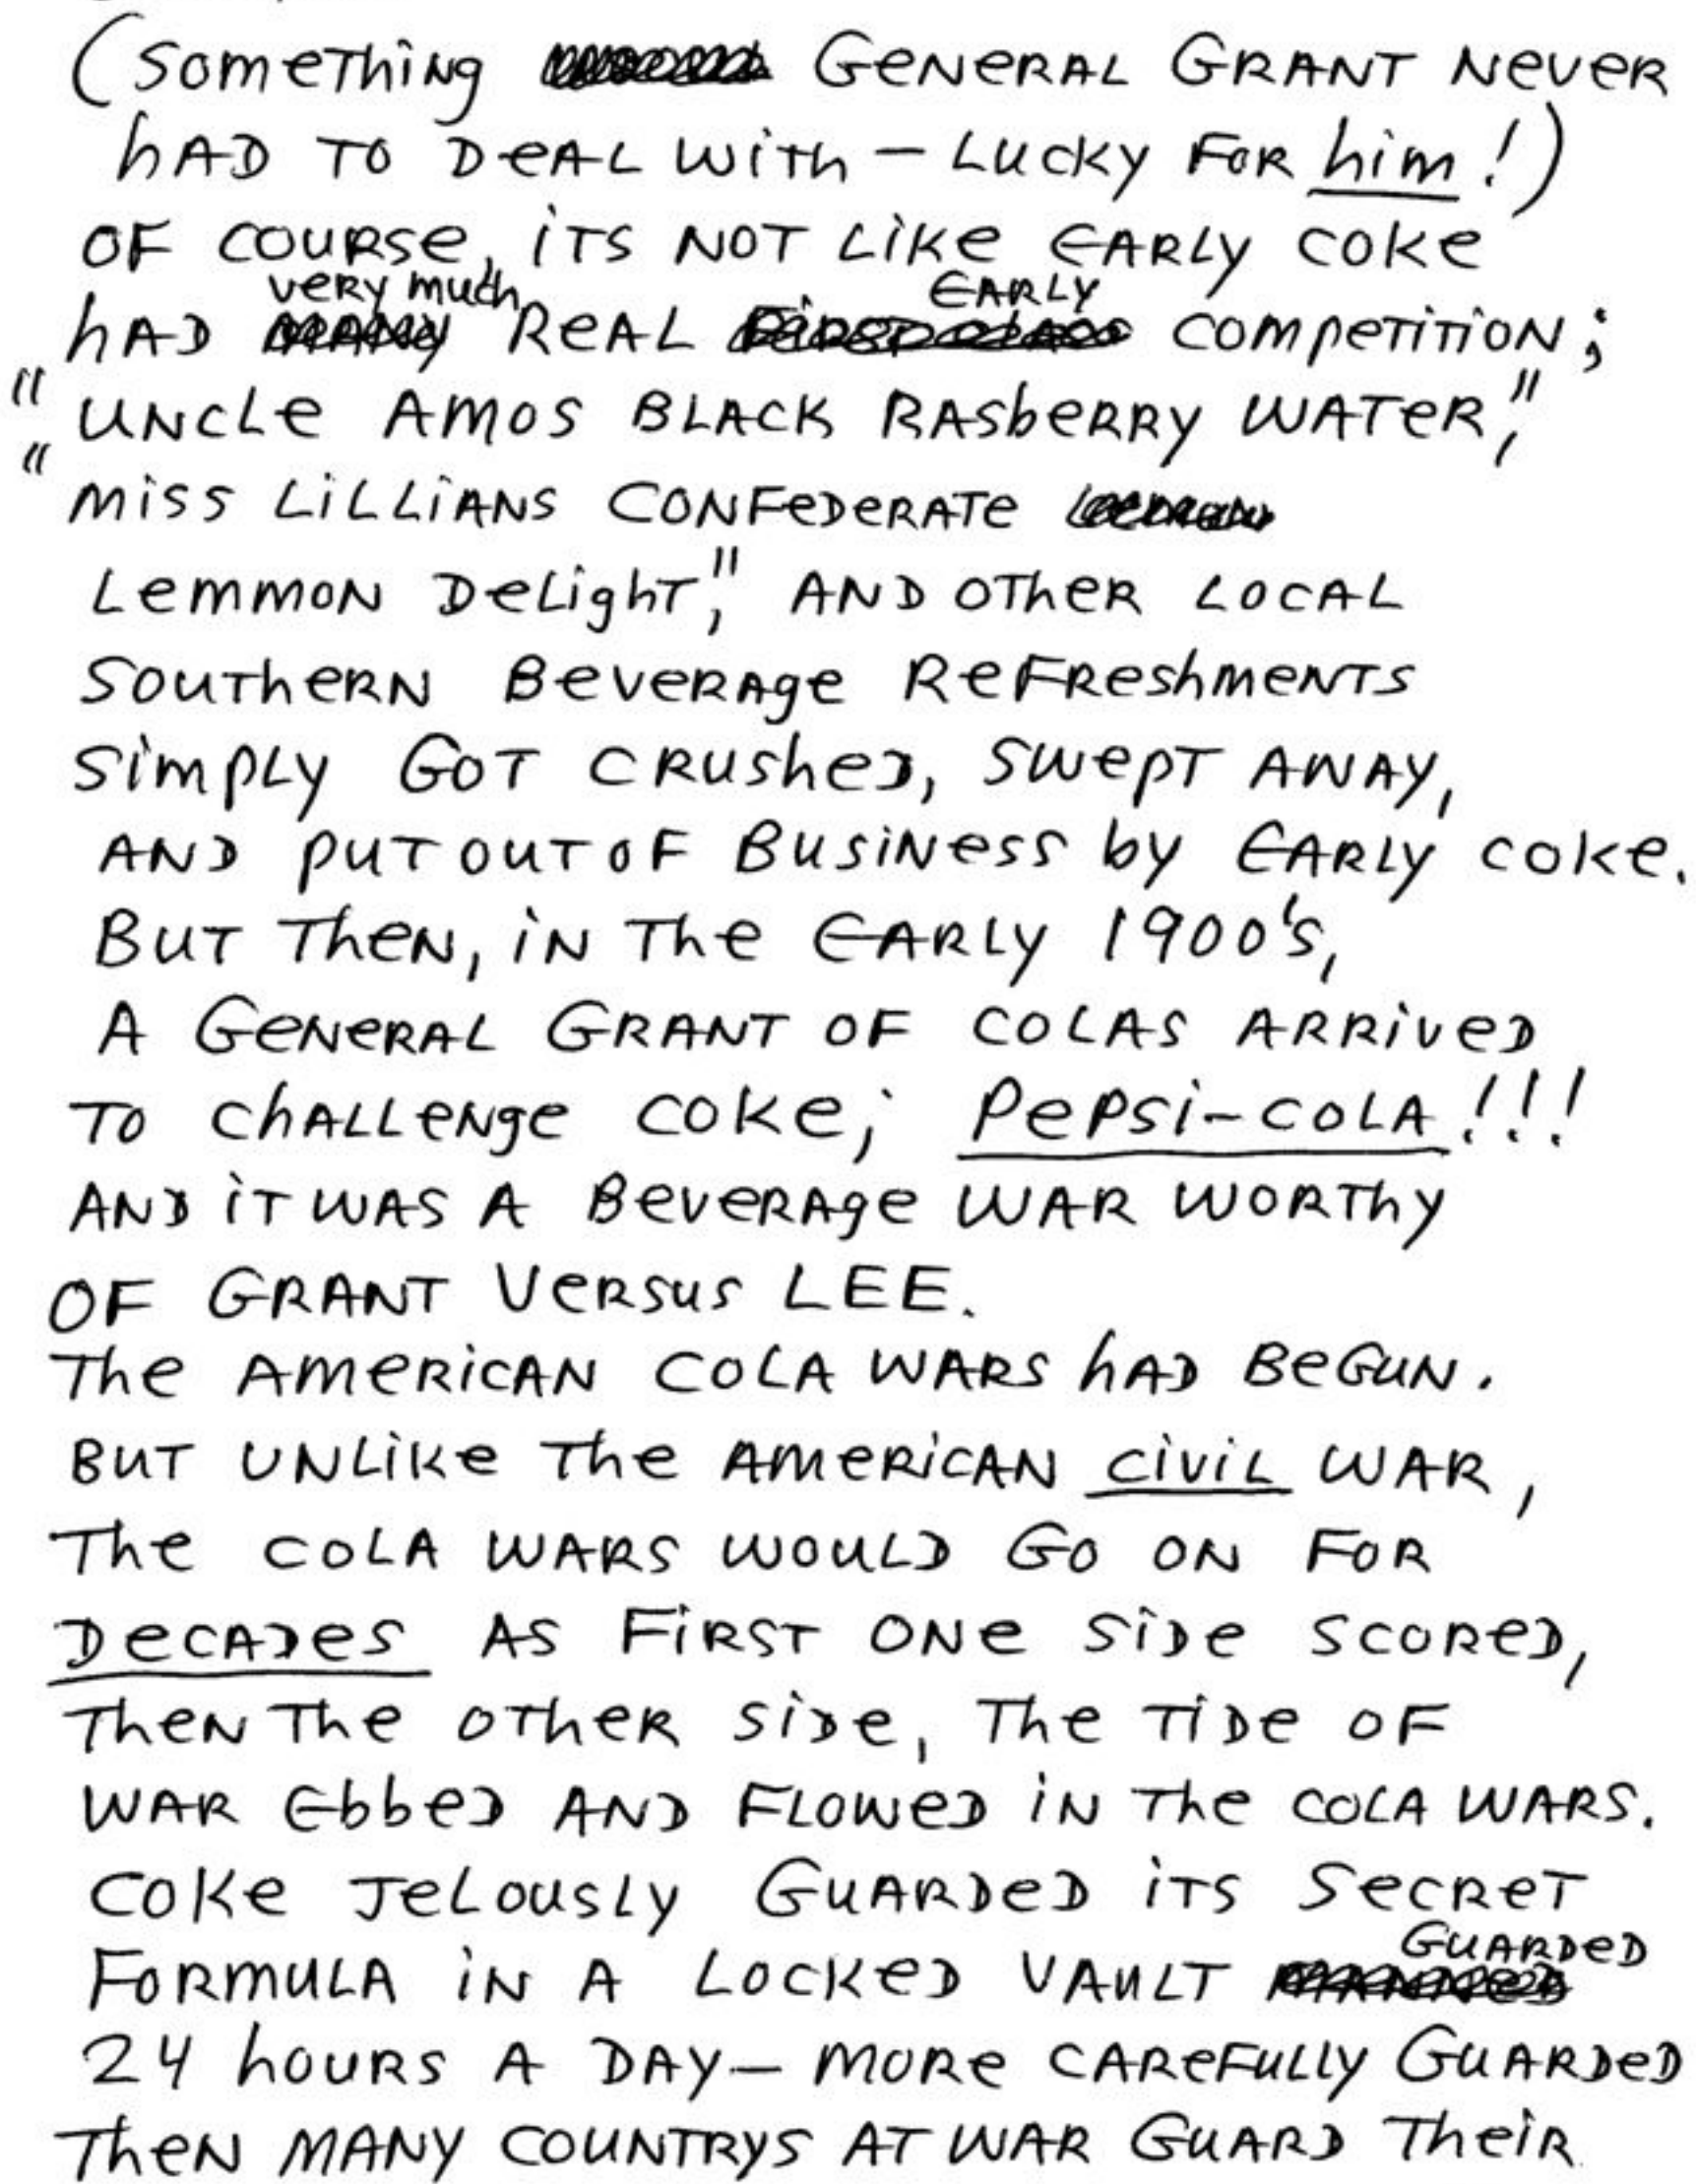 (Something GENERAL GRANT NEVER
HAD TO DEAL WITH – LUCKY FOR him!)
OF COURSE, ITS NOT LIKE EARLY COKE
very much EARLY
HAD REAL COMPETITION;
"UNCLE AMOS BLACK RASBERRY WATER,"
"MISS LILLIANS CONFEDERATE
LEMMON DELIGHT," AND OTHER LOCAL
SOUTHERN BEVERAGE REFRESHMENTS
SIMPLY GOT CRUSHED, SWEPT AWAY,
AND PUT OUT OF BUSINESS BY EARLY COKE.
BUT THEN, IN THE EARLY 1900's,
A GENERAL GRANT OF COLAS ARRIVED
TO CHALLENGE COKE; PEPSI-COLA!!!
AND IT WAS A BEVERAGE WAR WORTHY
OF GRANT VERSUS LEE.
THE AMERICAN COLA WARS HAD BEGUN.
BUT UNLIKE THE AMERICAN CIVIL WAR,
THE COLA WARS WOULD GO ON FOR
DECADES AS FIRST ONE SIDE SCORED,
THEN THE OTHER SIDE, THE TIDE OF
WAR EBBED AND FLOWED IN THE COLA WARS.
COKE JELOUSLY GUARDED ITS SECRET
GUARDED
FORMULA IN A LOCKED VAULT
24 HOURS A DAY – MORE CAREFULLY GUARDED
THEN MANY COUNTRYS AT WAR GUARD THEIR